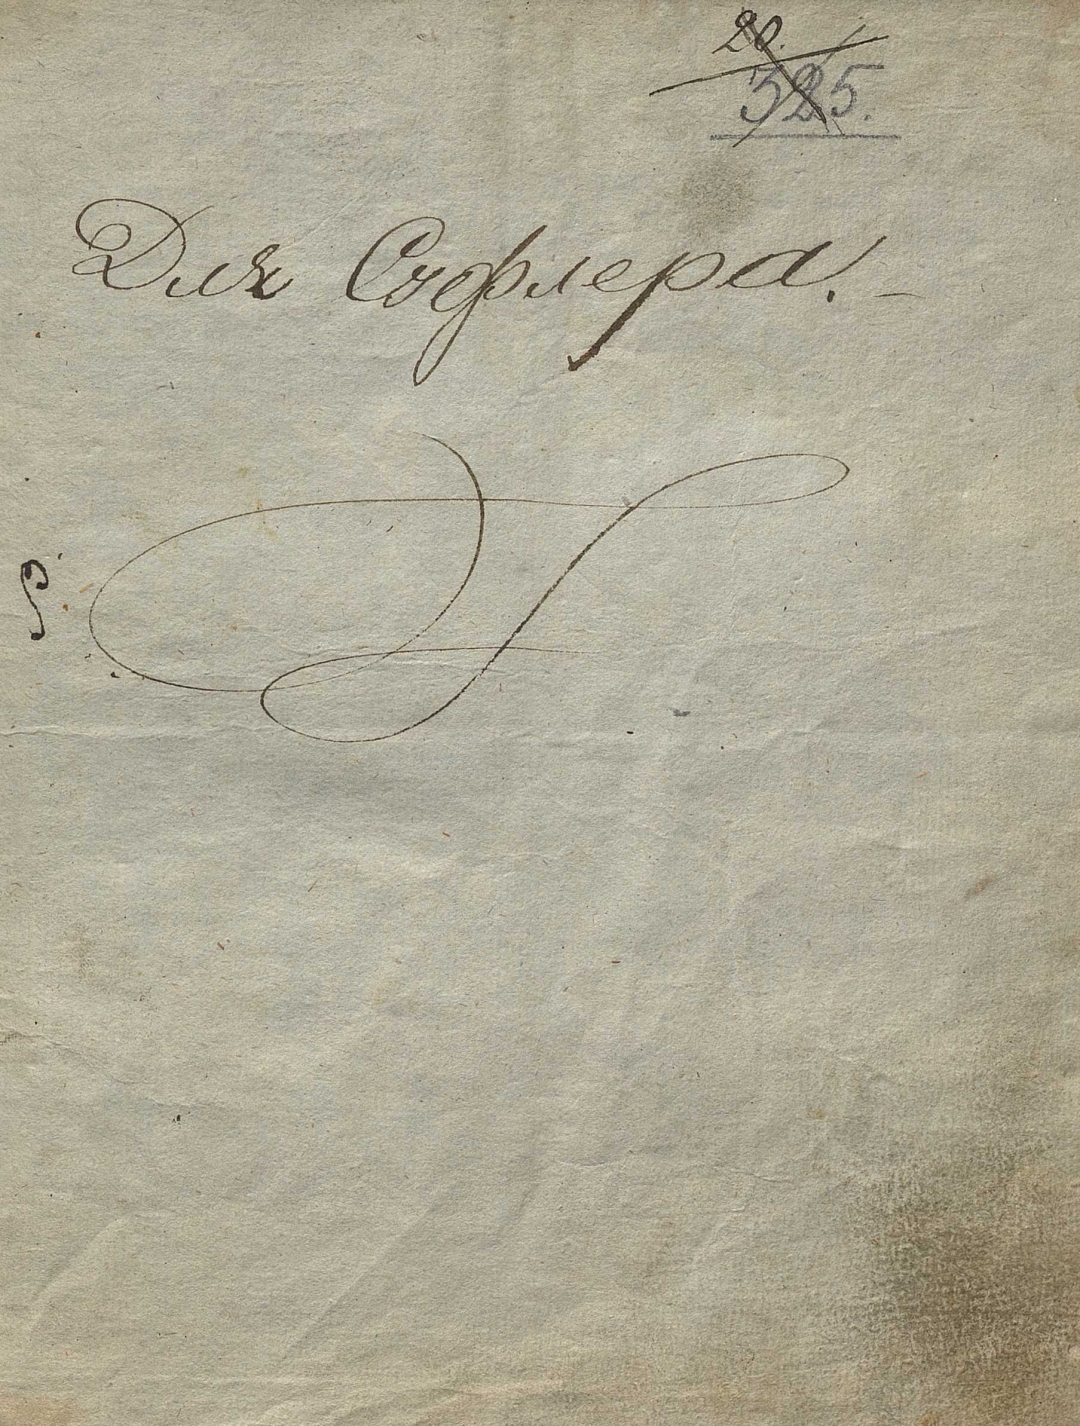 20.
325.
Для Суфлера.